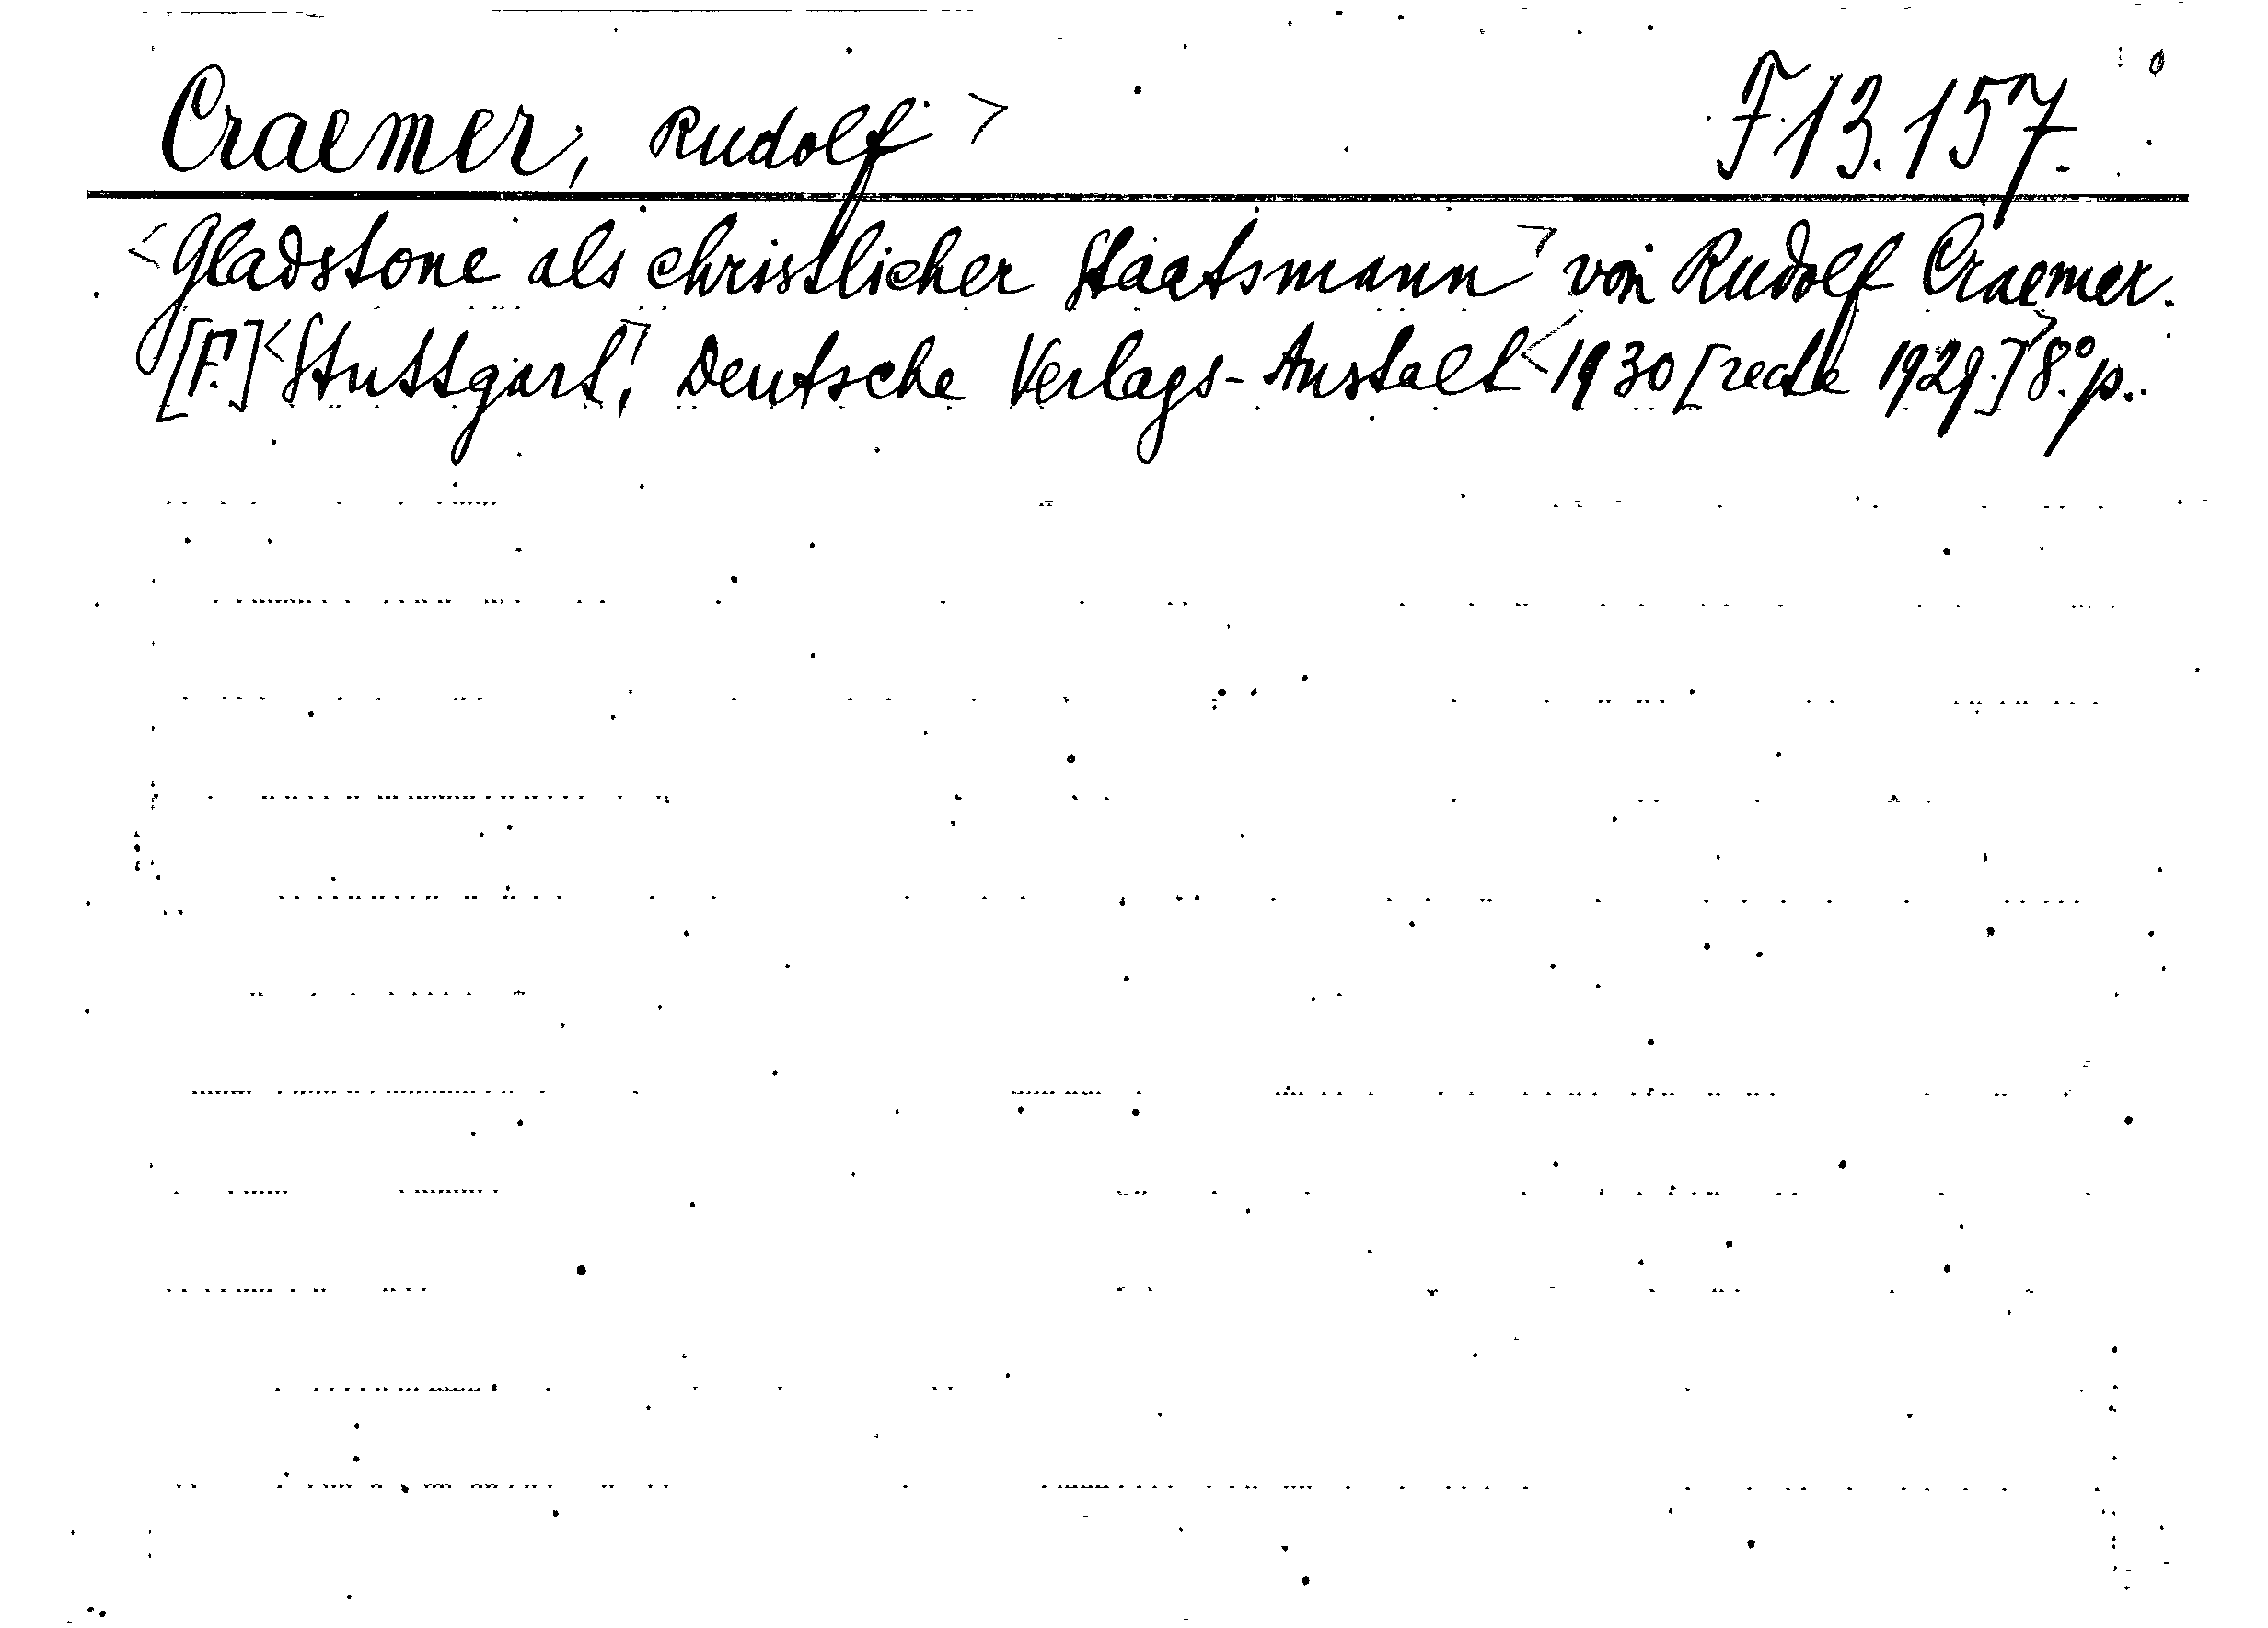 Craemer, Rudolf > F 13.157.
<Gladstone als christlicher Staatsmann> von Rudolf Craemer.
[F.] <Stuttgart>, Deutsche Verlags-Anstalt <1930 [recte 1929.]> 8.° p..